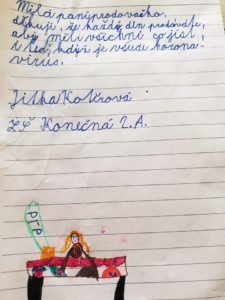 Milá paní prodavačko,
děkuji, že každý den prodáváte,
aby měli všichni co jíst,
i teď, když je všude korona-
virus.
Jitka Kotrová
ZŠ Konečná 2.A.